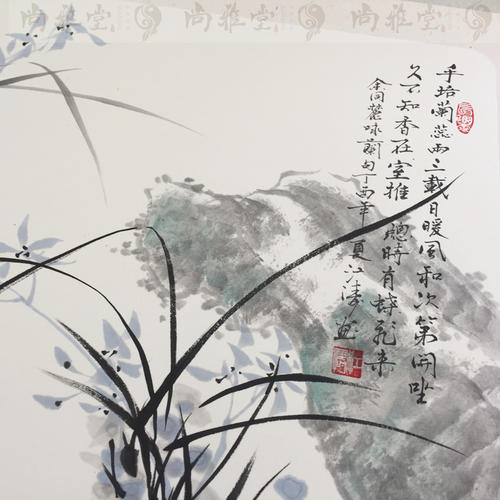 尚雅堂 尚雅堂 尚雅堂
手培蘭蕊兩三載日暖風和次第開坐
久不知香在室推窗時有蝶飛来
余同麓咏蘭句丁酉年夏江濤畫